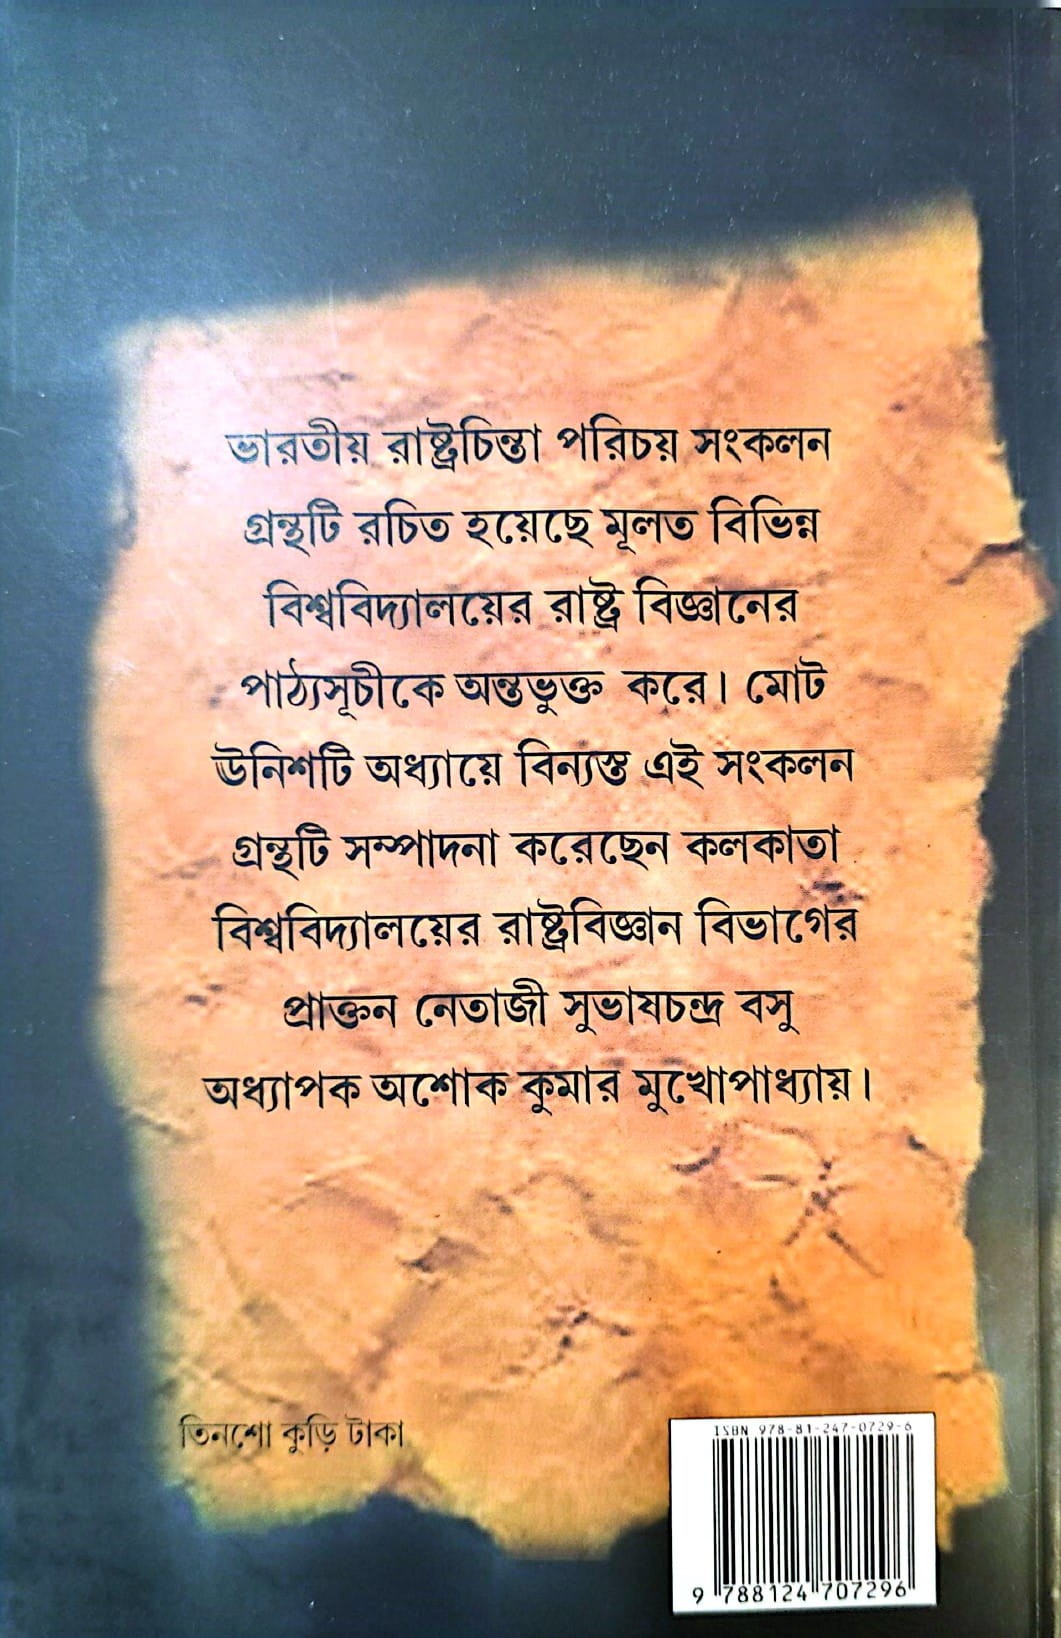 ভারতীয় রাষ্ট্রচিন্তা পরিচয় সংকলন
গ্রন্থটি রচিত হয়েছে মূলত বিভিন্ন
বিশ্ববিদ্যালয়ের রাষ্ট্র বিজ্ঞানের
পাঠ্যসূচীকে অন্তভুক্ত করে। মোট
ঊনিশটি অধ্যায়ে বিন্যস্ত এই সংকলন
গ্রন্থটি সম্পাদনা করেছেন কলকাতা
বিশ্ববিদ্যালয়ের রাষ্ট্রবিজ্ঞান বিভাগের
প্রাক্তন নেতাজী সুভাষচন্দ্র বসু
অধ্যাপক অশোক কুমার মুখোপাধ্যায়।
তিনশো কুড়ি টাকা
ISBN 978-81-247-0729-6
9 788124 707296